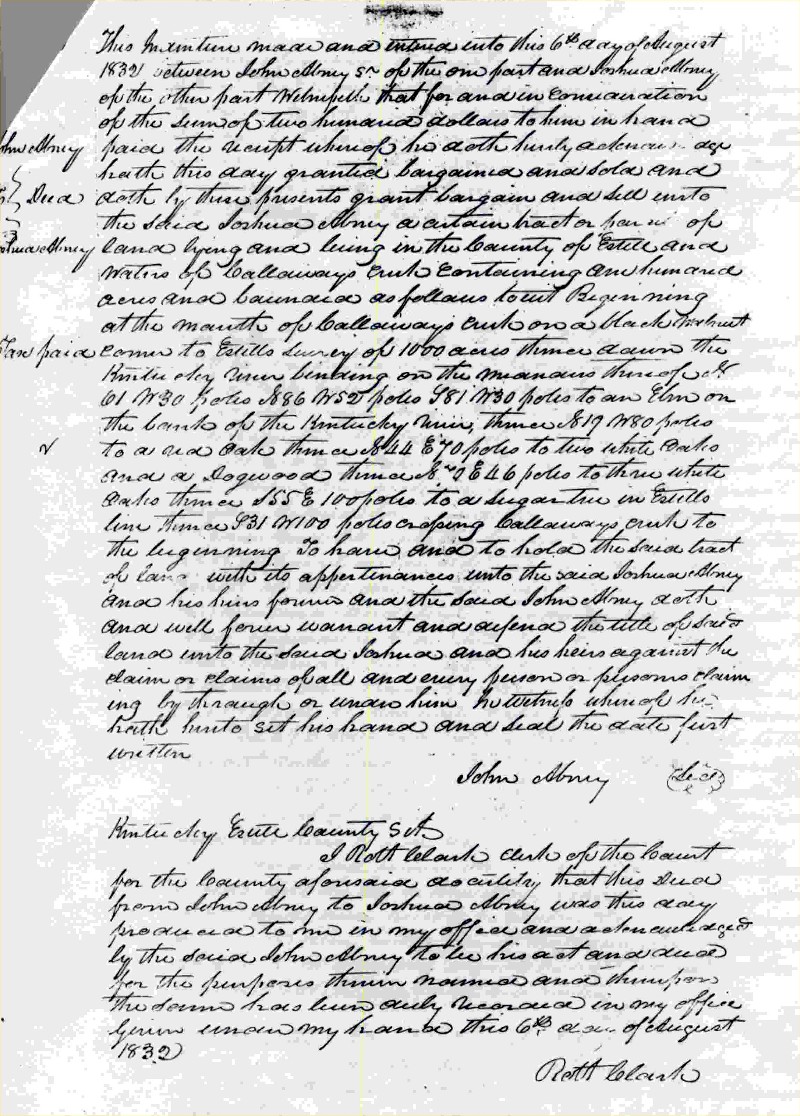 This Indenture made and entered into this 6th day of August
1832 between John Abney Sr of the one part and Joshua Abney
of the other part Witnesseth that for and in Consideration
of the sum of two hundred dollars to him in hand
John Abney
paid the receipt whereof he doth hereby acknowledge
hath this day granted bargained and sold and
Deed
doth by these presents grant bargain and sell unto
the said Joshua Abney a certain tract or parcel of
Joshua Abney
land lying and being in the County of Estill and
Waters of Callaways Creek Containing one hundred
acres and bounded as follows to wit Beginning
at the mouth of Callaways Creek on a black Walnut
Tax paid
corner to Estills survey of 1000 acres thence down the
Kentucky River bending on the meanders thereof N
61 W30 poles N86 W52 poles S81 W30 poles to an Elm on
the bank of the Kentucky River, thence N19 W80 poles
to a red Oak thence N44 E70 poles to two white Oaks
and a Dogwood thence E46 poles to three white
Oaks thence S55 E 100 poles to a sugartree in Estills
line thence S31 W100 poles crossing Callaways Creek to
the beginning To have and to hold the said tract
of land with its appertinances unto the said Joshua Abney
and his heirs forever and the said John Abney doth
and will forever warrant and defend the title of said
land unto the said Joshua and his heirs against the
claim or claims of all and every person or persons claim
ing by through or under him In Witness whereof he
hath hereto set his hand and seal the date first
written
John Abney (Seal)
Kentucky Estill County Sct
I Robt Clark Clerk of the Court
for the County aforesaid do certify that this Deed
from John Abney to Joshua Abney was this day
produced to me in my office and acknowledged
by the said John Abney to be his act and deed
for the purposes therein named and thereupon
the same has been duly recorded in my office
Given under my hand this 6th day of August
1832
Robt Clark